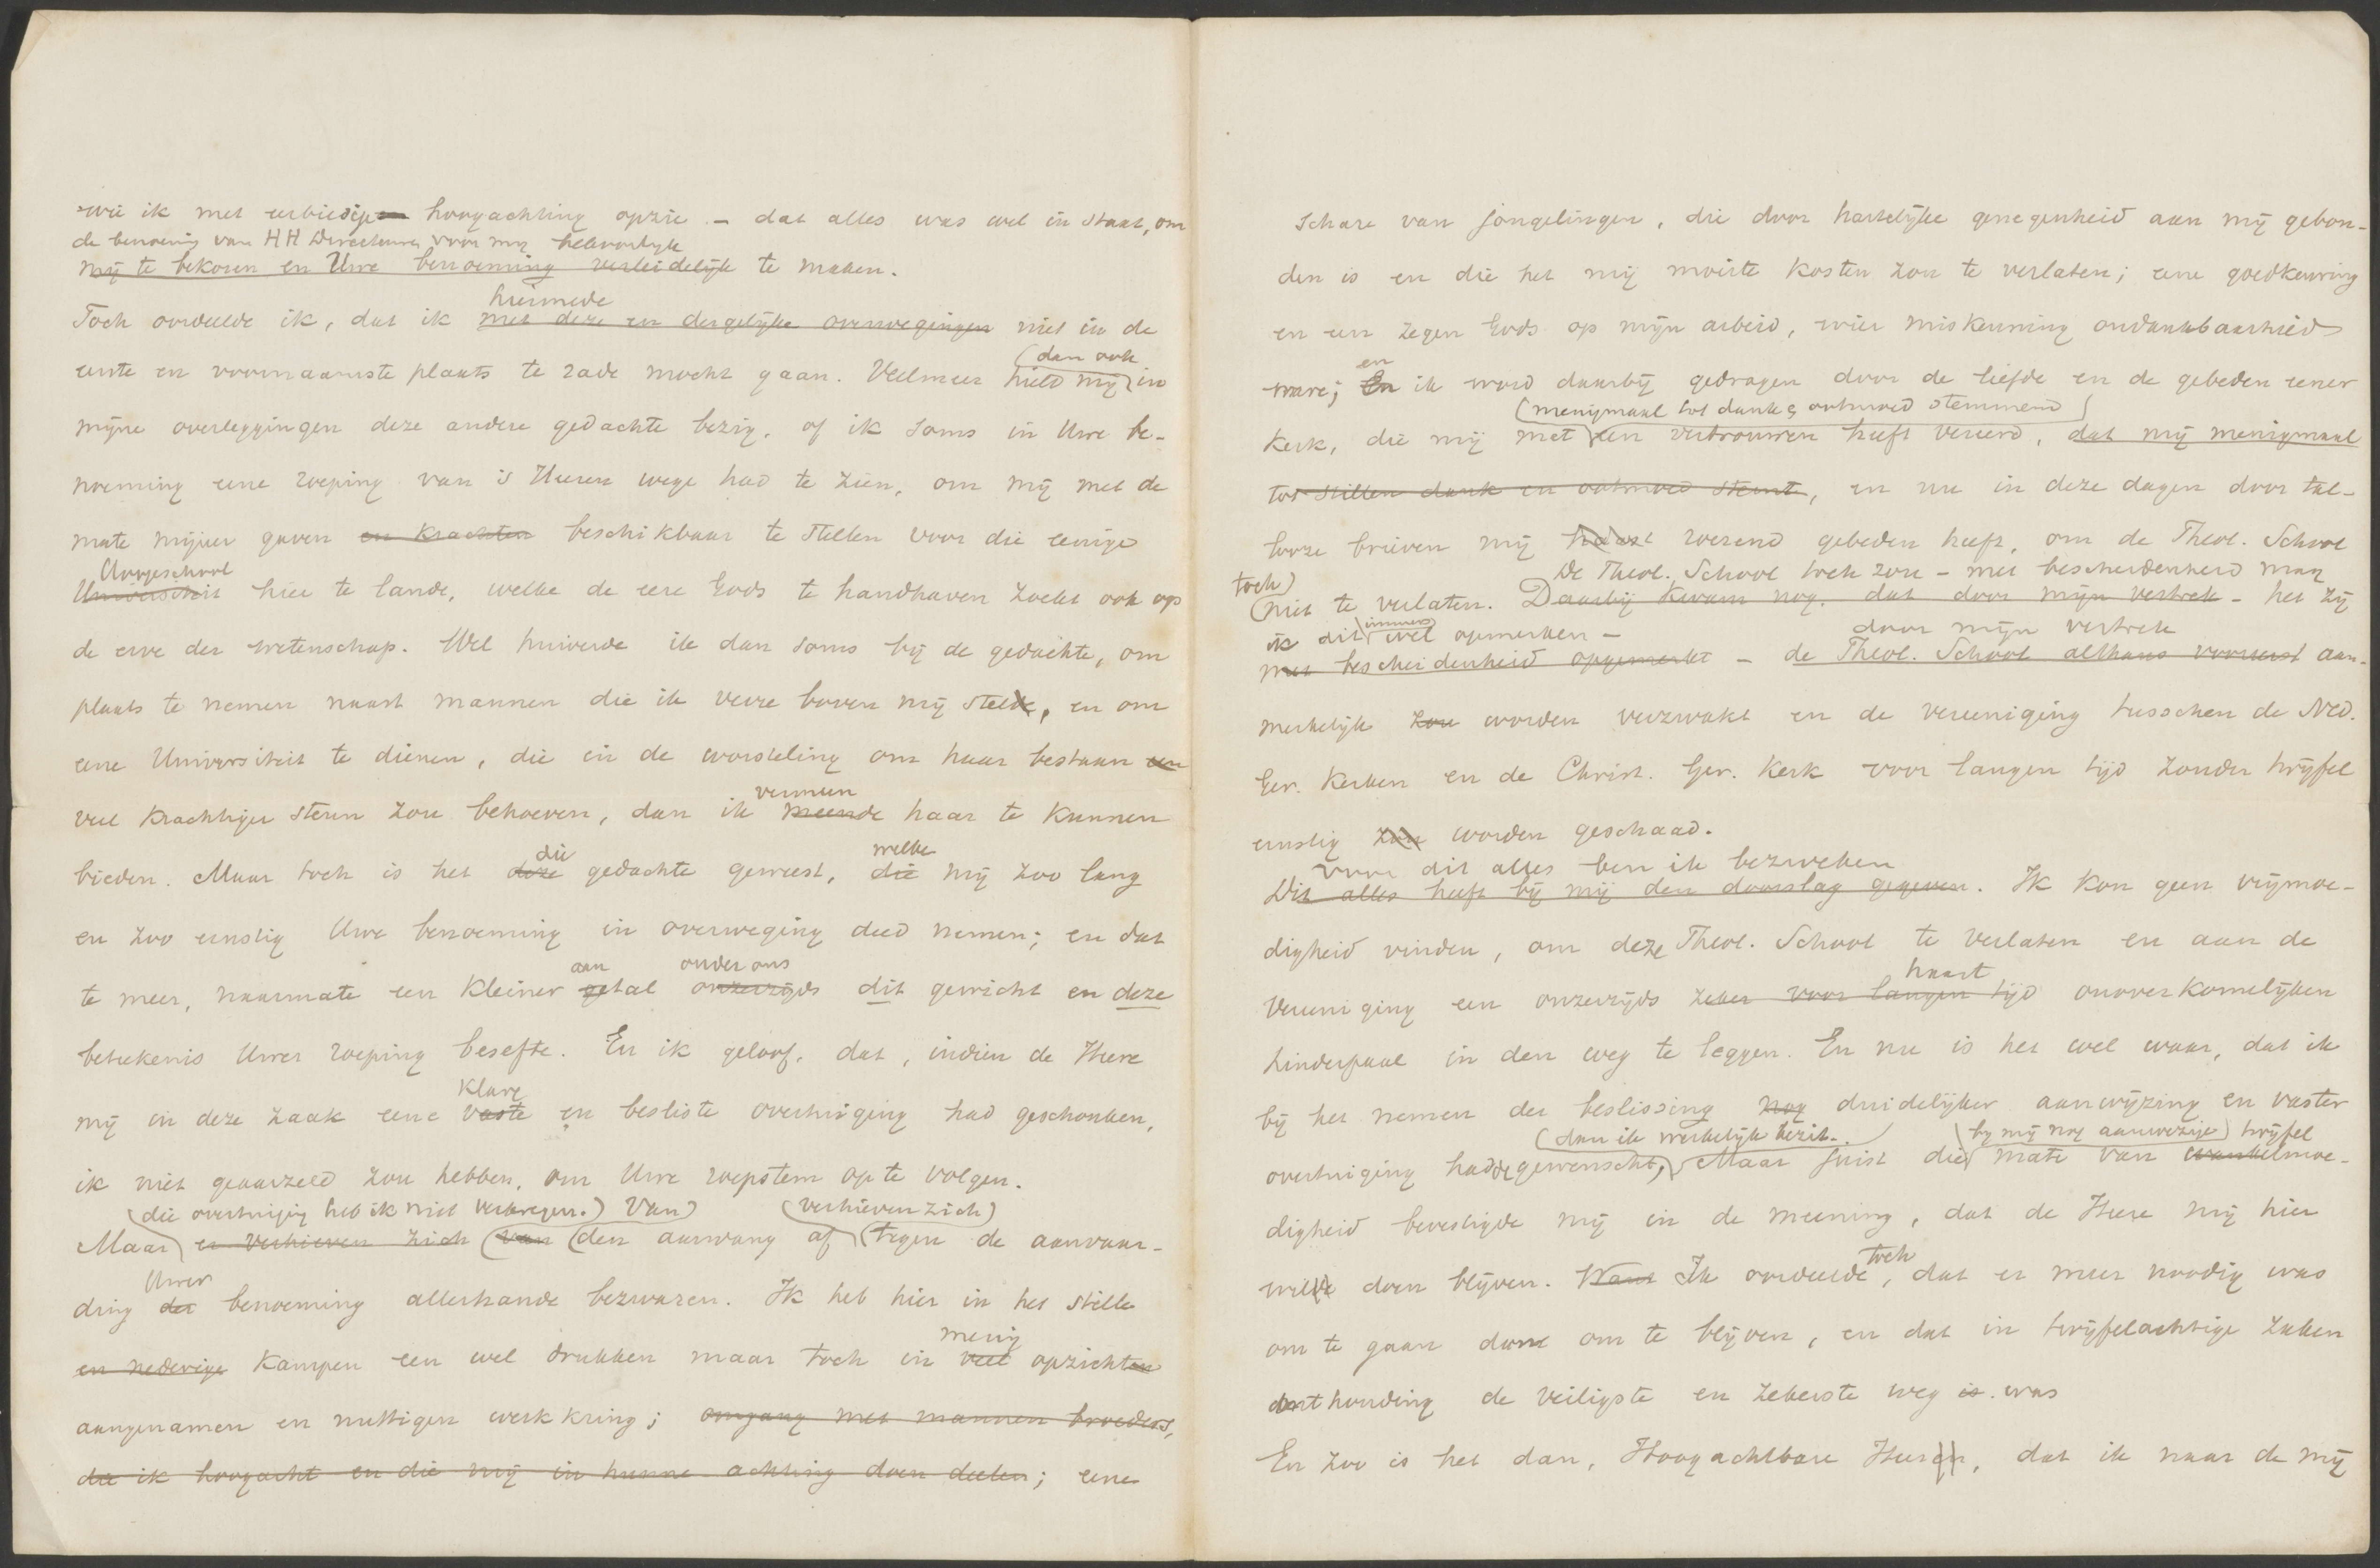 wie ik met eerbiedige hoogachting opzie – dat alles was wel in staat, om
de benoeming van HH Directeuren voor mij
mij te bekoren en Uwe benoeming verleidelijk te maken.
hiermede
Toch oordeelde ik, dat ik met deze en dergelijke overwegingen niet in de
(dan ook
eerste en voornaamste plaats te rade mocht gaan. Veelmeer hield mij) in
mijne overleggingen deze andere gedachte bezig, of ik soms in Uwe be-
noeming eene roeping van 's Heeren wege had te zien, om mij met de
mate mijner gaven en krachten beschikbaar te stellen voor die eenige
Hoogeschool
Universiteit hier te lande, welke de eere Gods te handhaven zoekt ook op
de erve der wetenschap. Wel huiverde ik dan soms bij de gedachte, om
plaats te nemen naast mannen die ik verre boven mij stelde, en om
eene Universiteit te dienen, die in de worsteling om haar bestaan een
vermeen
veel krachtiger steun zou behoeven, dan ik meende haar te kunnen
die welke
bieden. Maar toch is het deze gedachte geweest, die mij zoo lang
en zoo ernstig Uwe benoeming in overweging deed nemen; en dat
aan onder ons
te meer, naarmate een kleiner getal onzerzijds dit gewicht en deze
beteekenis Uwer roeping besefte. En ik geloof, dat, indien de Heere
klare
mij in deze zaak eene vaste en besliste overtuiging had geschonken,
ik niet geaarzeld zou hebben, om Uwe roepstem op te volgen.
(die overtuiging heb ik niet verkregen.) Van) (verhieven zich)
Maar) er verhieven zich (van (den aanvang af) (tegen de aanvaar-
Uwer
ding der benoeming allerhande bezwaren. Ik heb hier in het stille
menig
en nederige Kampen een wel drukken maar toch in veel opzichten
aangenamen en nuttigen werkkring; omgang met mannen broeders,
die ik hoogacht en die mij in hunne achting doen deelen; eene
schare van jongelingen, die door hartelijke genegenheid aan mij gebon-
den is en die het mij moeite kosten zou te verlaten; eene goedkeuring
en een zegen Gods op mijn arbeid, wier miskenning ondankbaarheid
en
ware; En ik word daarbij gedragen door de liefde en de gebeden eener
(menigmaal tot dank & ootmoed stemmend)
Kerk, die mij met een vertrouwen heeft vereerd, dat mij menigmaal
tot stillen dank en ootmoed stemt, en nu in deze dagen door tal-
looze brieven mij haast roerend gebeden heeft, om de Theol. School
De Theol. School toch zou – met bescheidenheid mag
toch)
(niet te verlaten. Daarbij kwam nog, dat door mijn vertrek – het zij
ik dit immers wel opmerken – door mijn vertrek
met bescheidenheid opgemerkt – de Theol. School althans voorerst aan-
merkelijk zou worden verzwakt en de vereeniging tusschen de Ned.
Ger. Kerken en de Christ. Ger. Kerk voor langen tijd zonder twijfel
ernstig zou worden geschaad.
Voor dit alles ben ik bezweken
Dit alles heeft bij mij den doorslag gegeven. Ik kon geen vrijmoe-
digheid vinden, om deze Theol. School te verlaten en aan de
haast
Vereeniging een onzerzijds zeker voor langen tijd onoverkomelijken
hinderpaal in den weg te leggen. En nu is het wel waar, dat ik
bij het nemen der beslissing nog duidelijker aanwijzing en vaster
(dan ik werkelijk bezit. (bij mij nog aanwezige) twijfel
overtuiging hadde gewenscht,) Maar juist die mate van wankelmoe-
digheid bevestigde mij in de meening, dat de Heere mij hier
toch
wilde doen blijven. Want Ik oordeelde, dat er meer noodig was
om te gaan dan om te blijven, en dat in twijfelachtige zaken
onthouding de veiligste en zekerste weg is. was
En zoo is het dan, Hoogachtbare Heeren, dat ik naar de mij